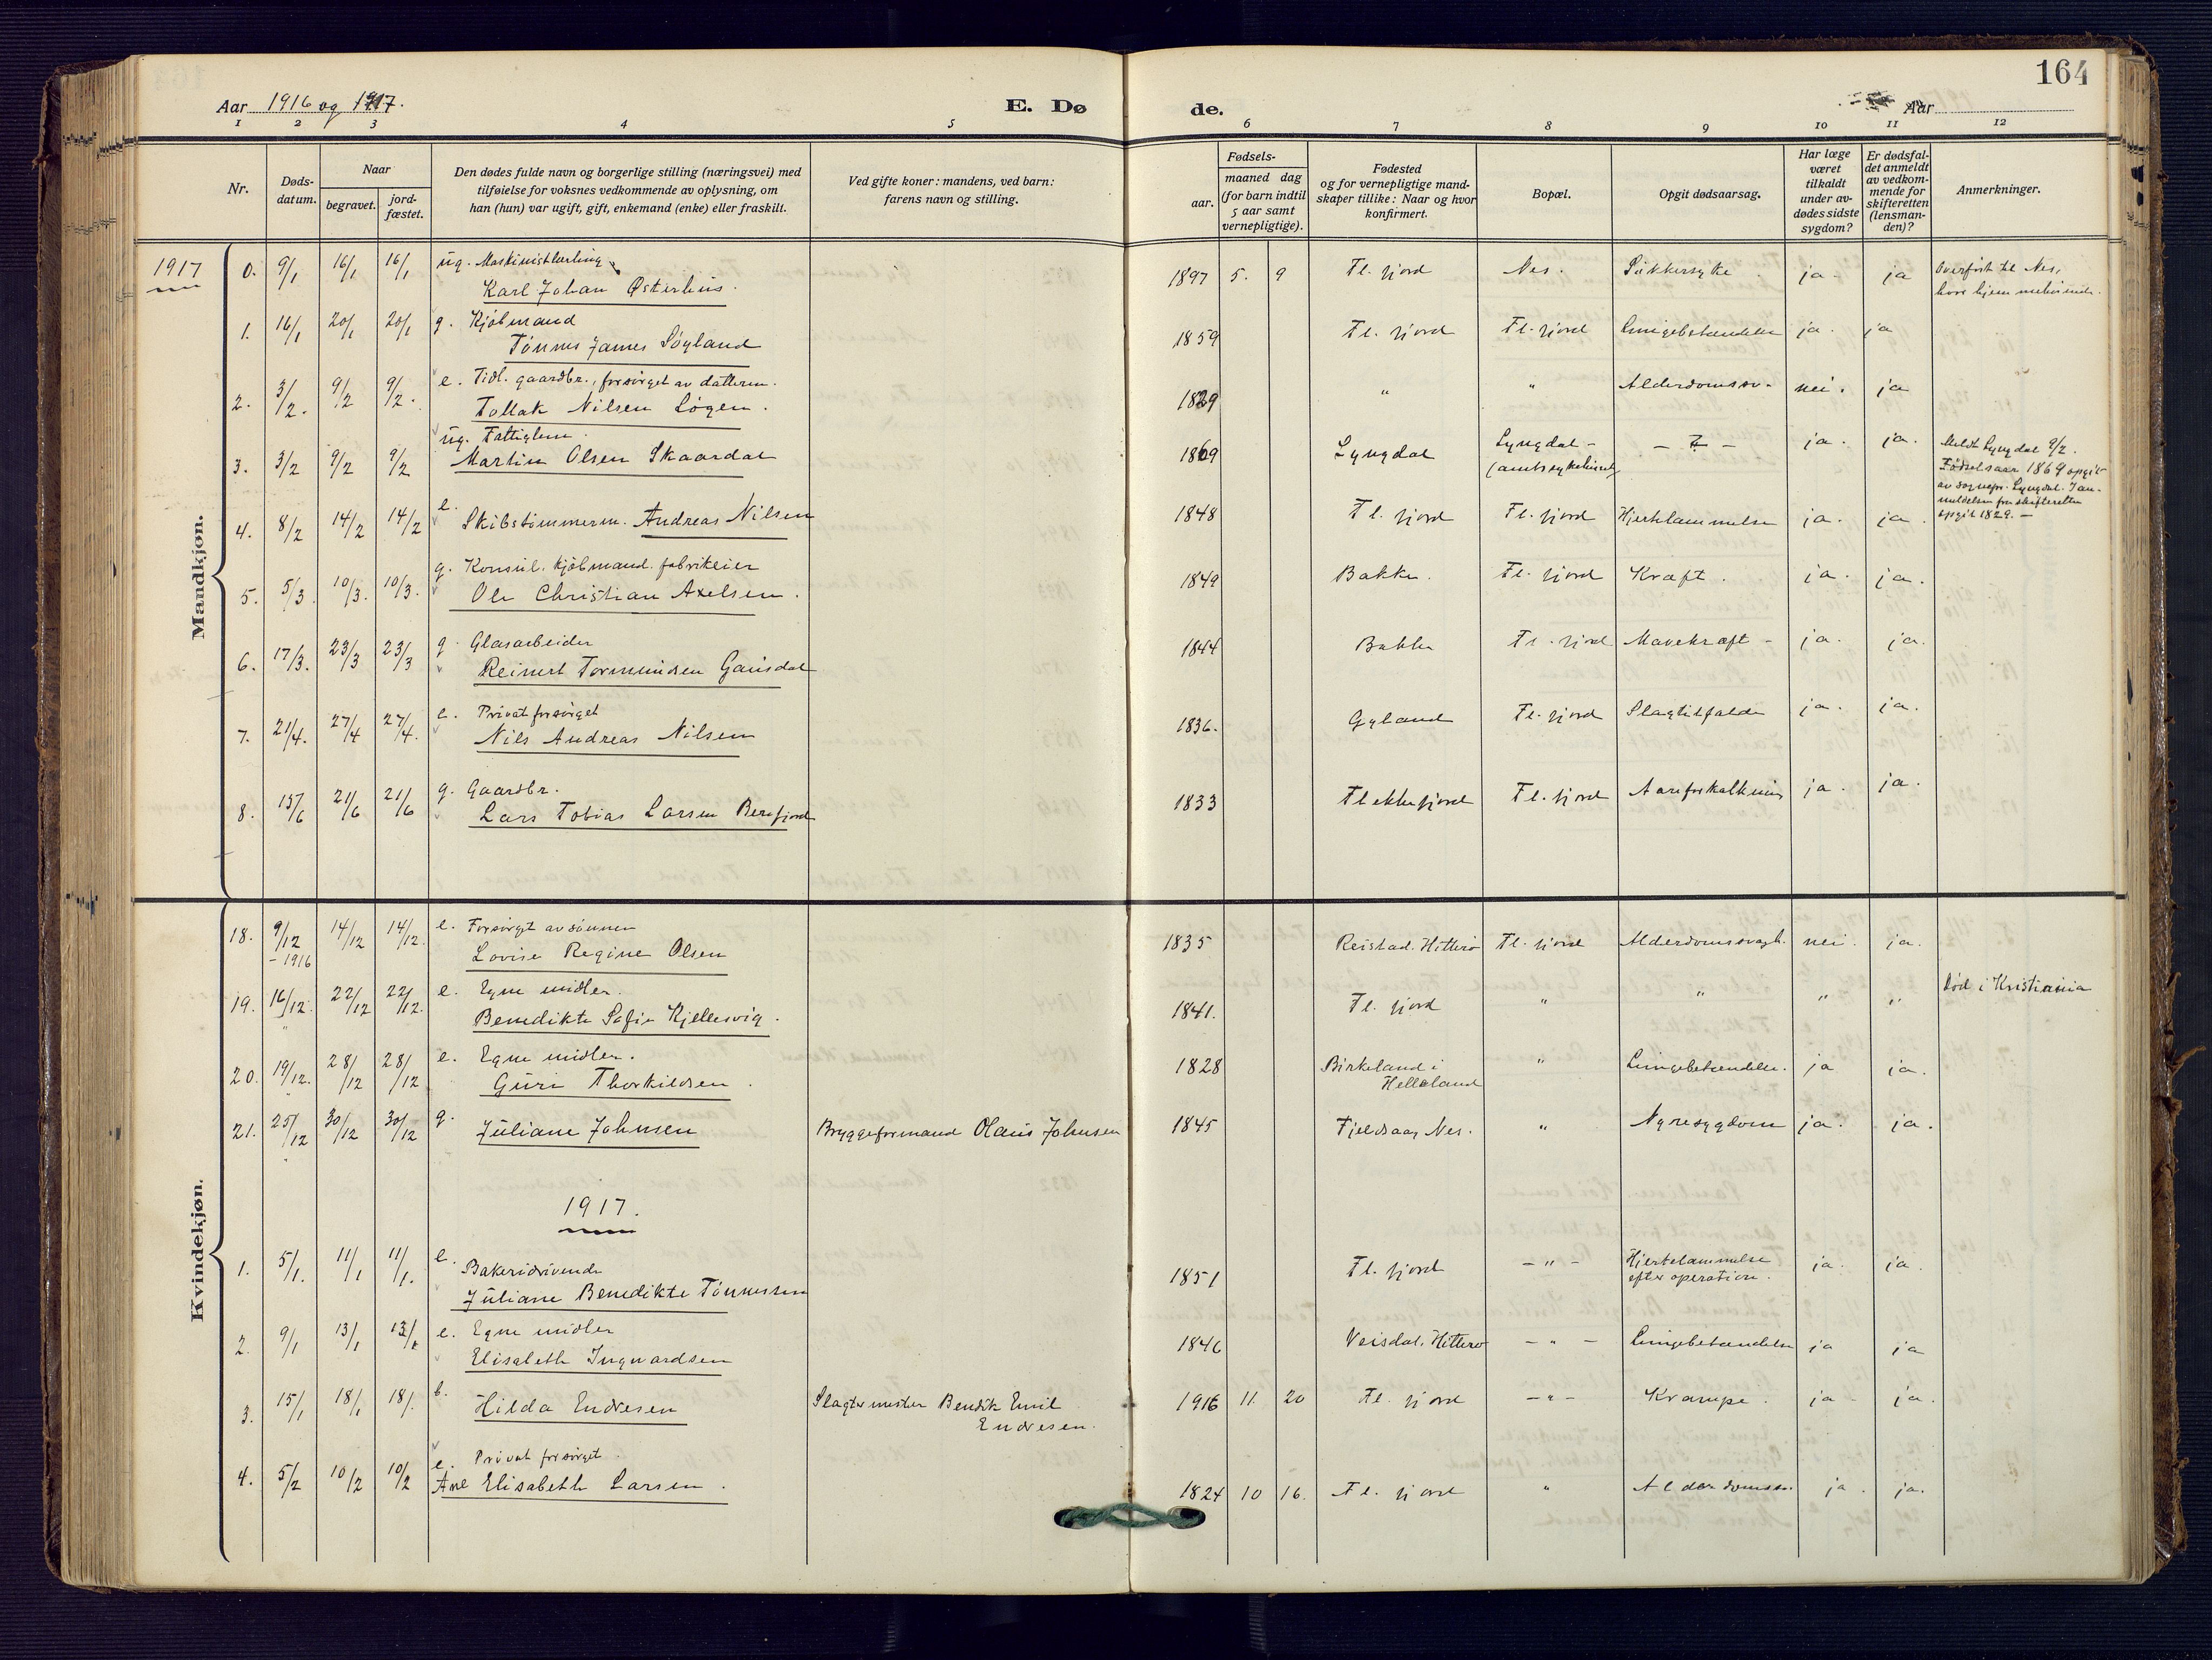 164
Aar 1916 og 1917.
E. Dø
de.
Aar
1 2 3 4 5 6 7 8 9 10 11 12
Nr.
Døds-
datum.
Naar
begravet.
jord-
fæstet.
Den dødes fulde navn og borgerlige stilling (næringsvei) med
tilføielse for voksnes vedkommende av oplysning, om
han (hun) var ugift, gift, enkemand (enke) eller fraskilt.
Ved gifte koner: mandens, ved barn:
farens navn og stilling.
Fødsels-
aar.
maaned dag
(for barn indtil
5 aar samt
vernepligtige).
Fødested
og for vernepligtige mand-
skaper tillike: Naar og hvor
konfirmert.
Bopæl.
Opgit dødsaarsag.
Har læge
været
tilkaldt
under av-
dødes sidste
sygdom?
Er dødsfal-
det anmeldt
av vedkom-
mende for
skifteretten
(lensman-
den)?
Anmerkninger.
Mandkjøn.
1917
0. 9/1 16/1 16/1 ug. Maskinistlærling
Karl Johan Østerhus. 1897 5. 9 Fl. fjord Nes. Sukkersyke ja. ja Overført til Nes,
1. 16/1 20/1 20/1 g. Kjøbmand
Tønnes James Løgland 1859 Fl. fjord Fl. fjord Lungebetændelse ja. ja
2. 3/2. 9/2 9/2. e. Tidl. gaardbr., forsørget av datteren.
Tollak Nilsen Løgen. 1829 " " Alderdomssv. nei. ja
3. 3/2 9/2 9/2 ug. Fattiglem.
Martin Olsen Skaardal 1869 Lyngdal Lyngdal - — ? — ja. ja. Meldt Lyngdal 9/2.
(amtssykehuset)
Fødselsaar 1869 opgit
av sognepr. Lyngdal. I an-
meldelsen fra skifteretten
opgit 1829. —
4. 8/2 14/2 14/2 e. Skibstømmerm. Andreas Nilsen 1848 Fl. fjord Fl. fjord Hjertelammelse ja. ja.
5. 5/3. 10/3. 10/3. g. Konsul. kjøbmand. fabrikeier
Ole Christian Axelsen. 1849 Bakke. Fl. fjord Kræft. ja. ja.
6. 17/3. 23/3 23/3 g. Glasarbeider
Reinert Tormundsen Gausdal 1844 Bakke Fl. fjord Mavekræft - ja. ja.
7. 21/4. 27/4 27/4. e. Privat forsørget
Nils Andreas Nilsen 1836. Gyland Fl. fjord Slagtilfælde ja. ja.
8. 15/6 21/6 21/6 g. Gaardbr.
Lars Tobias Larsen Berefjord 1833 Flekkefjord Fl. fjord Aareforkalkning ja. ja.
Kvindekjøn.
18. 9/12 14/12 14/12. e. Forsørget av sønnen
- 1916 Lovise Regine Olsen 1835 Reistad. Hitterø Fl. fjord Alderdomssvagh. nei. ja.
19. 16/12. 22/12 22/12. e. Egne midler.
Benedikte Sofie Kjellesvig. 1841. Fl. fjord " " " " Død i Kristiania
20. 19/12. 28/12 28/12 e. Egne midler.
Guri Thorkildsen. 1828 Birkeland i
Helleland " Lungebetændelse. ja ja.
21. 25/12 30/12 30/12 g. Juliane Johnsen Bryggeformand Olaus Johnsen 1845 Fjeldsaa, Nes. " Nyresygdom ja. ja.
1917.
1. 5/1. 11/1 11/1. e. Bakeridrivende
Juliane Benedikte Tønnessen 1851 Fl. fjord — " — Hjertelammelse
efter operation. ja. ja.
2. 9/1 13/1 13/1 e. Egne midler
Elisabeth Ingvardsen 1846 Veisdal. Hitterø — " — Lungebetændelse ja ja
3. 15/1 18/1 18/1 b. Hilda Endresen Slagtermester Bendik Emil
Endresen. 1916 11. 20 Fl. fjord — " — Krampe. ja ja.
4. 5/2 10/2 10/2 e. Privat forsørget.
Ane Elisabeth Larsen. 1824 10 16. Fl. fjord " Alderdomssv. ja. ja.